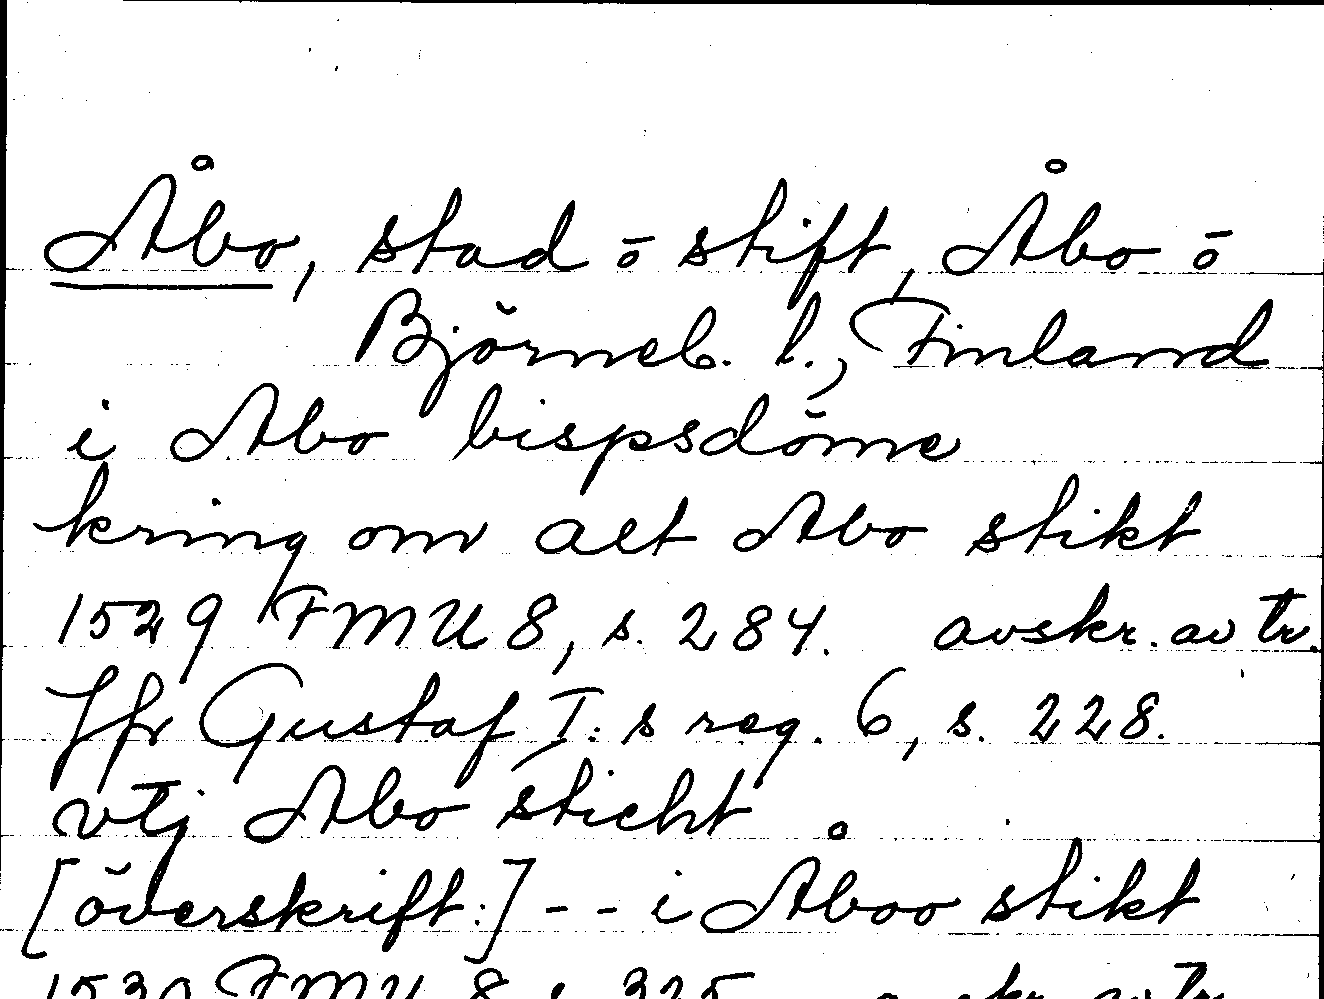 Åbo, stad o stift, Åbo o
Björneb. l., Finland
i Abo bispsdöme
kring om alt Abo stikt
1529 FMU 8, s. 284. avskr. av tr.
Jfr Gustaf I:s reg. 6, s. 228.
vtj Abo sticht
[överskrift:] -- i Åboo stikt
1530 FMU 8 s. 325 avskr. av tr.